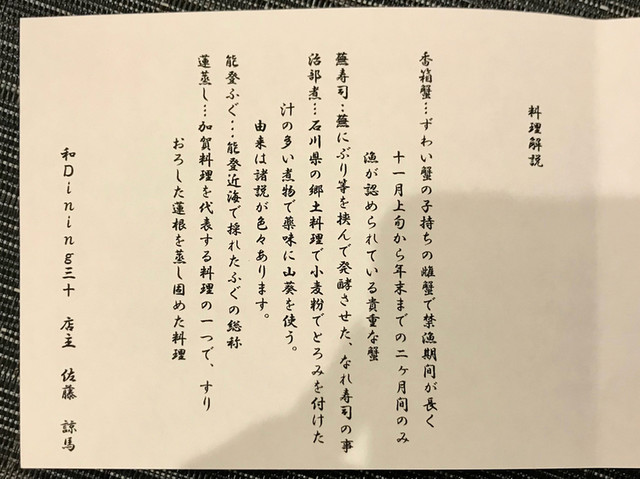 料理解説
香箱蟹…ずわい蟹の子持ちの雌蟹で禁漁期間が長く
十一月上旬から年末までの二ヶ月間のみ
漁が認められている貴重な蟹
蕪寿司…蕪にぶり等を挟んで発酵させた、なれ寿司の事
治部煮…石川県の郷土料理で小麦粉でとろみを付けた
汁の多い煮物で薬味に山葵を使う。
由来は諸説が色々あります。
能登ふぐ…能登近海で採れたふぐの総称
蓮蒸し…加賀料理を代表する料理の一つで、すり
おろした蓮根を蒸し固めた料理
和Dining三十 店主 佐藤 諒馬